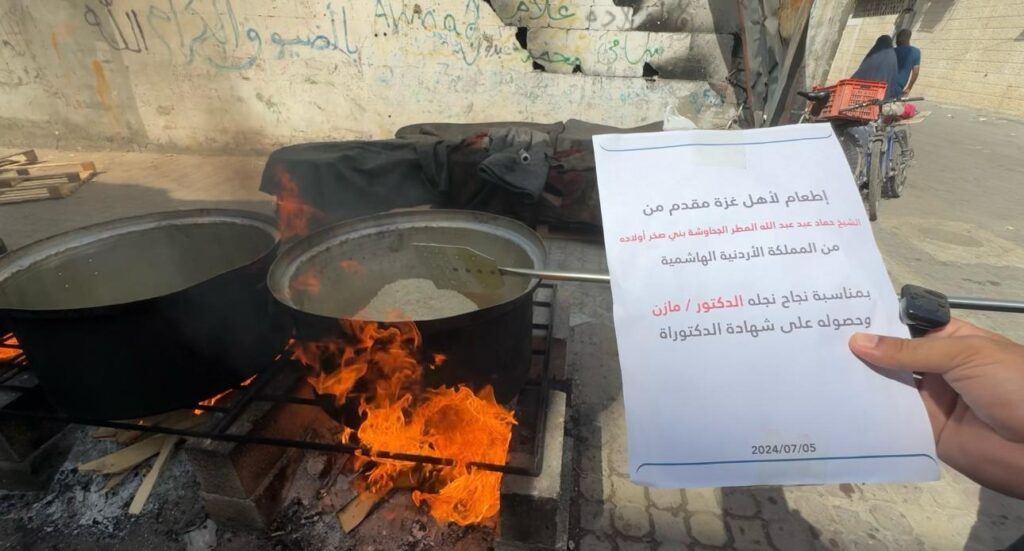 بالضيوف الكرام
الله
Ahmad
علاء
محمد
إطعام لأهل غزة مقدم من
الشيخ حماد عبد عبد الله المطر الجحاوشة بني صخر أولاده
من المملكة الأردنية الهاشمية
بمناسبة نجاح نجله الدكتور / مازن
وحصوله على شهادة الدكتوراة
2024/07/05